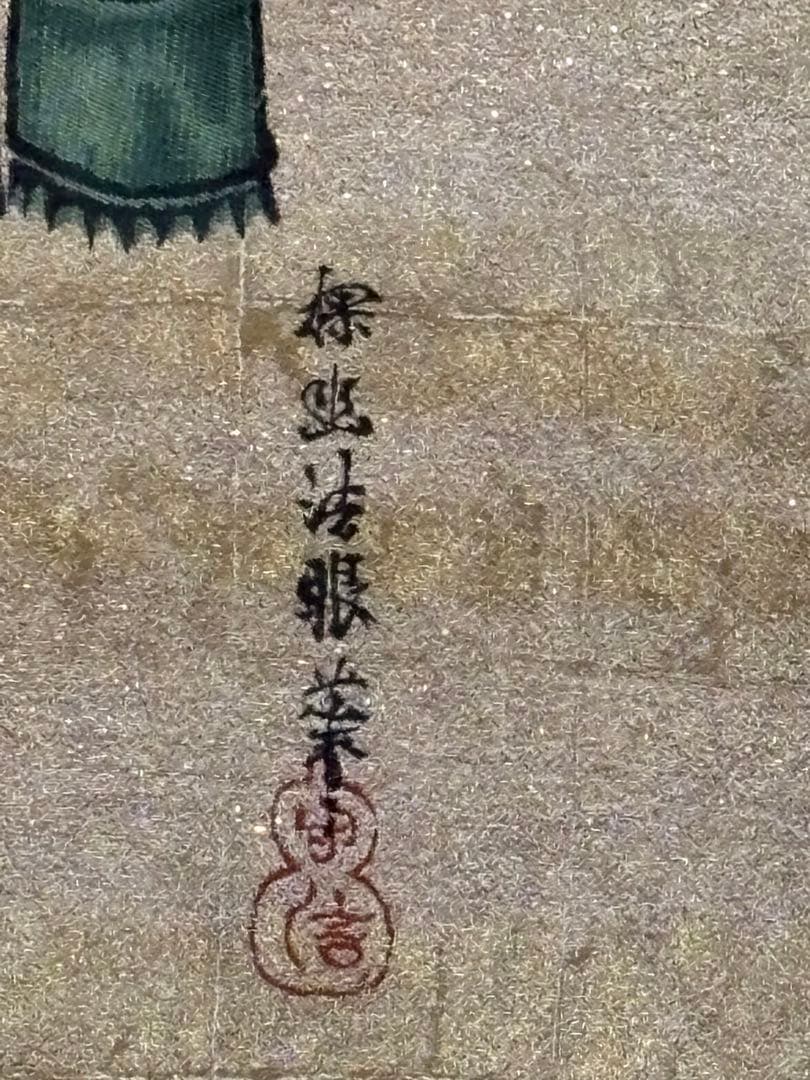 探幽法眼筆
守信